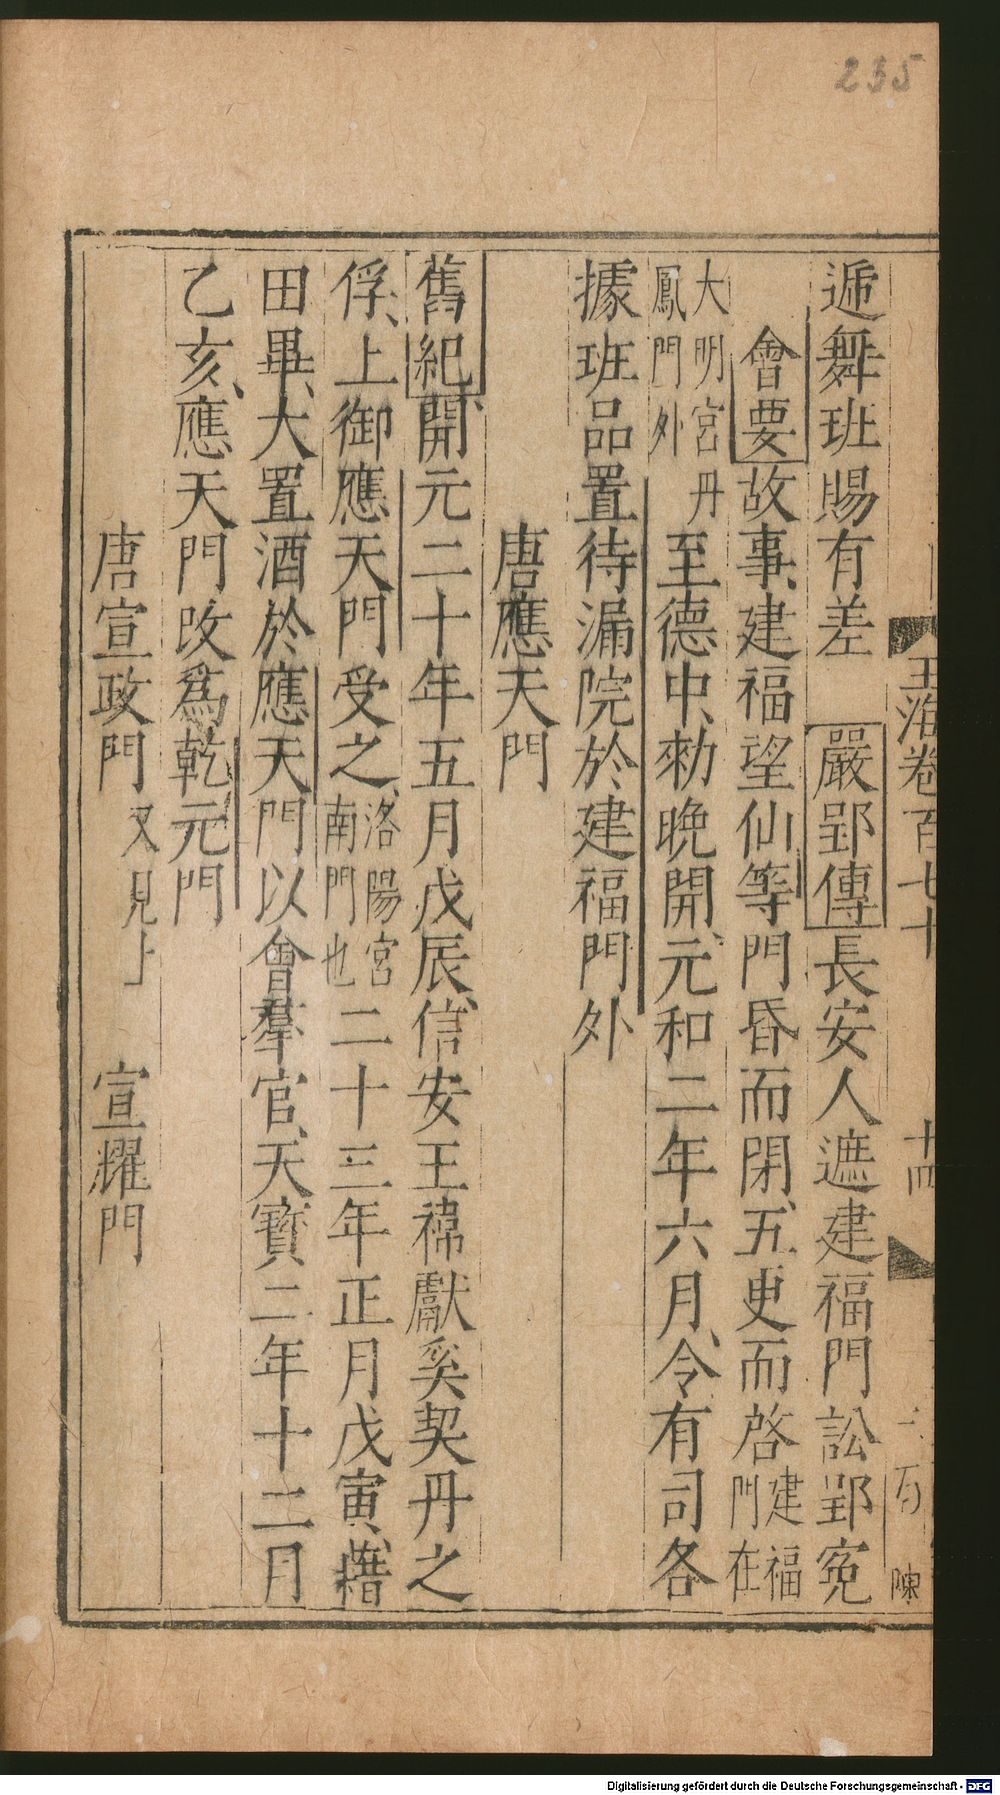 235
玉海卷百七十
十四
陳
遞舞班賜有差 嚴郢傳長安人遮建福門訟郢寃
會要故事建福望仙等門昏而閉五更而啓建福門在
大明宮丹鳳門外至德中勑晩開元和二年六月令有司各
據班品置待漏院於建福門外
唐應天門
舊紀開元二十年五月戊辰信安王禕獻奚契丹之
俘上御應天門受之洛陽宮南門也二十三年正月戊寅藉
田畢大置酒於應天門以會羣官天寶二年十二月
乙亥應天門改爲乾元門
唐宣政門又見上 宣耀門
Digitalisierung gefördert durch die Deutsche Forschungsgemeinschaft - DFG